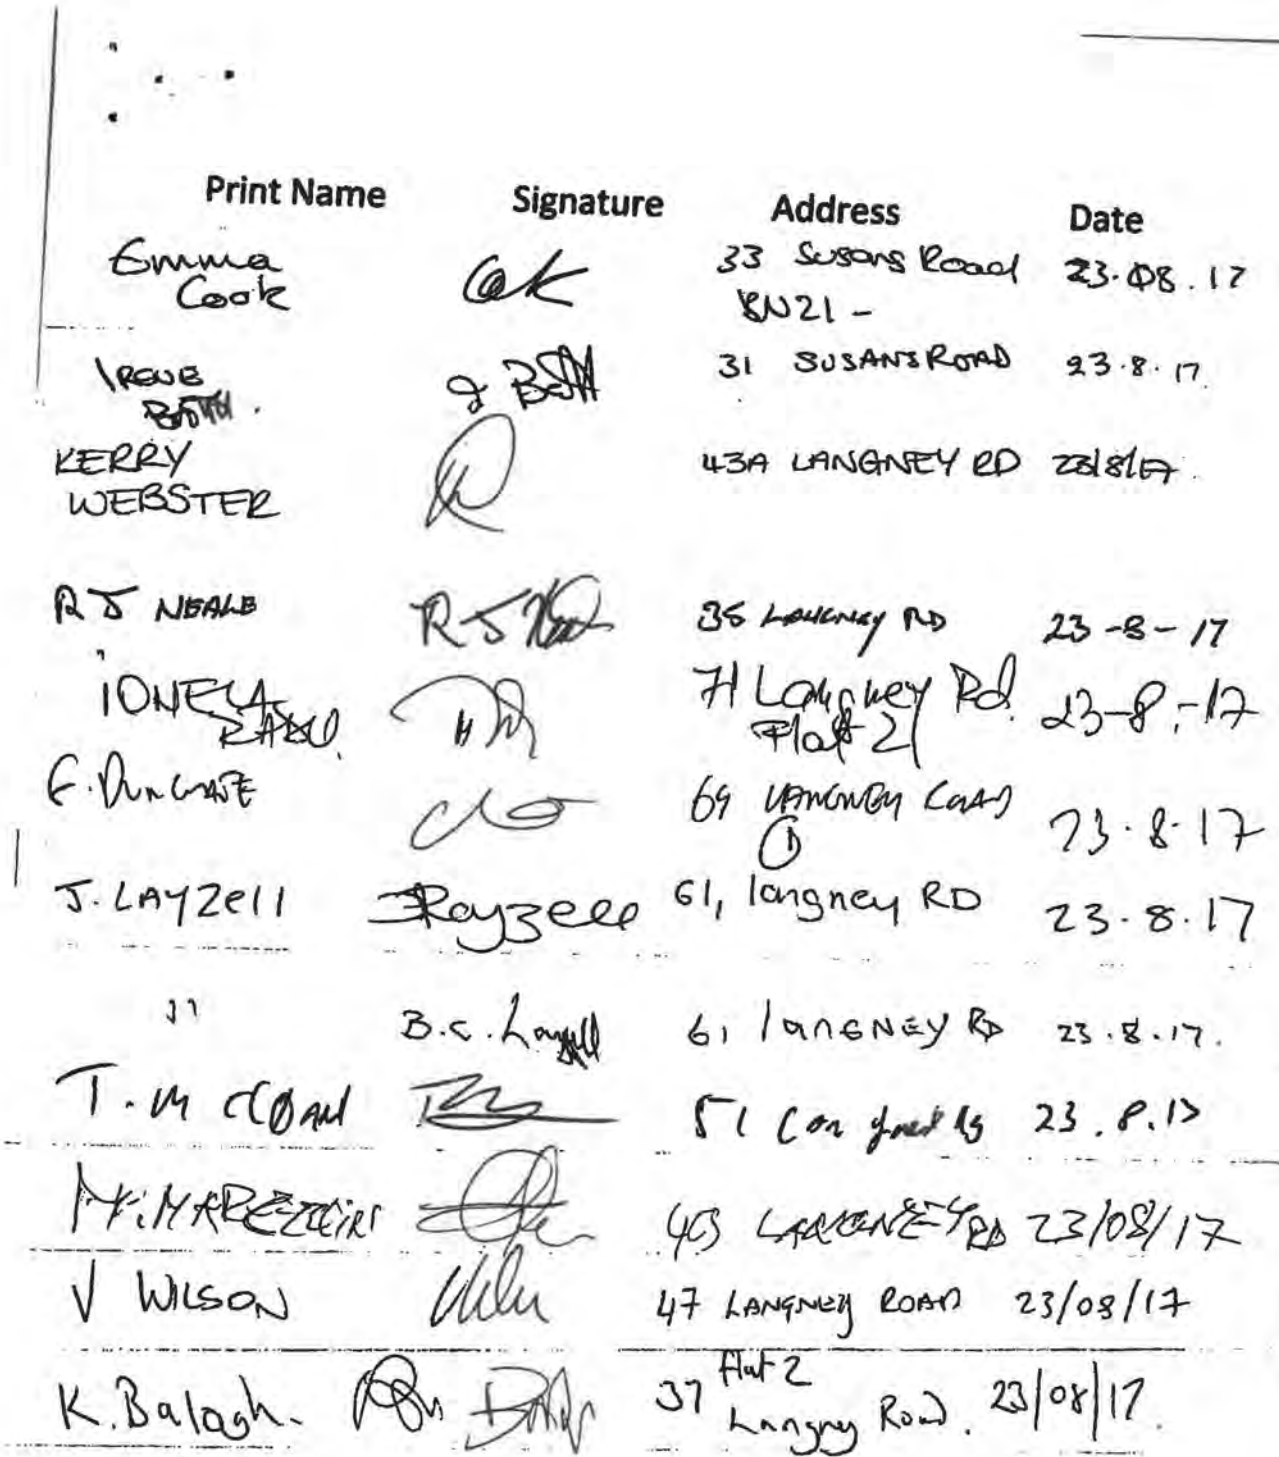 Print Name Signature Address Date
Emma Cook 33 Susans Road 23.08.17
BN21 -
IRENE 31 SUSANS ROAD 23.8.17
KERRY 43A LANGNEY RD 23/8/17
WEBSTER
R J NEALE R J 35 LANGNEY RD 23-8-17
IONELA 71 Langney Rd. 23-8-17
RADU Flat 2
69 LANGNEY ROAD 23.8.17
J. LAYZell JRayzell 61, langney RD 23.8.17
11 B.C. Layzell 61 langNEY RD 23.8.17.
T. M 51 23.8.17
LANGNEY RD 23/08/17
V WILSON 47 LANGNEY ROAD 23/08/17
K. Balogh. 37 Flat 2
Langney Road. 23/08/17.